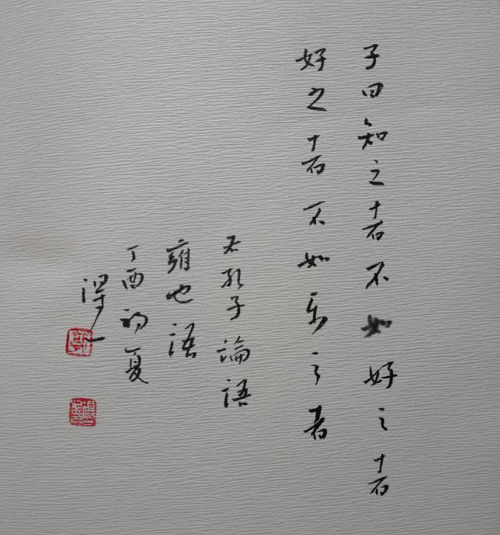 子曰知之者不如好之者
好之者不如乐之者
孔子論語
雍也語
丁酉初夏